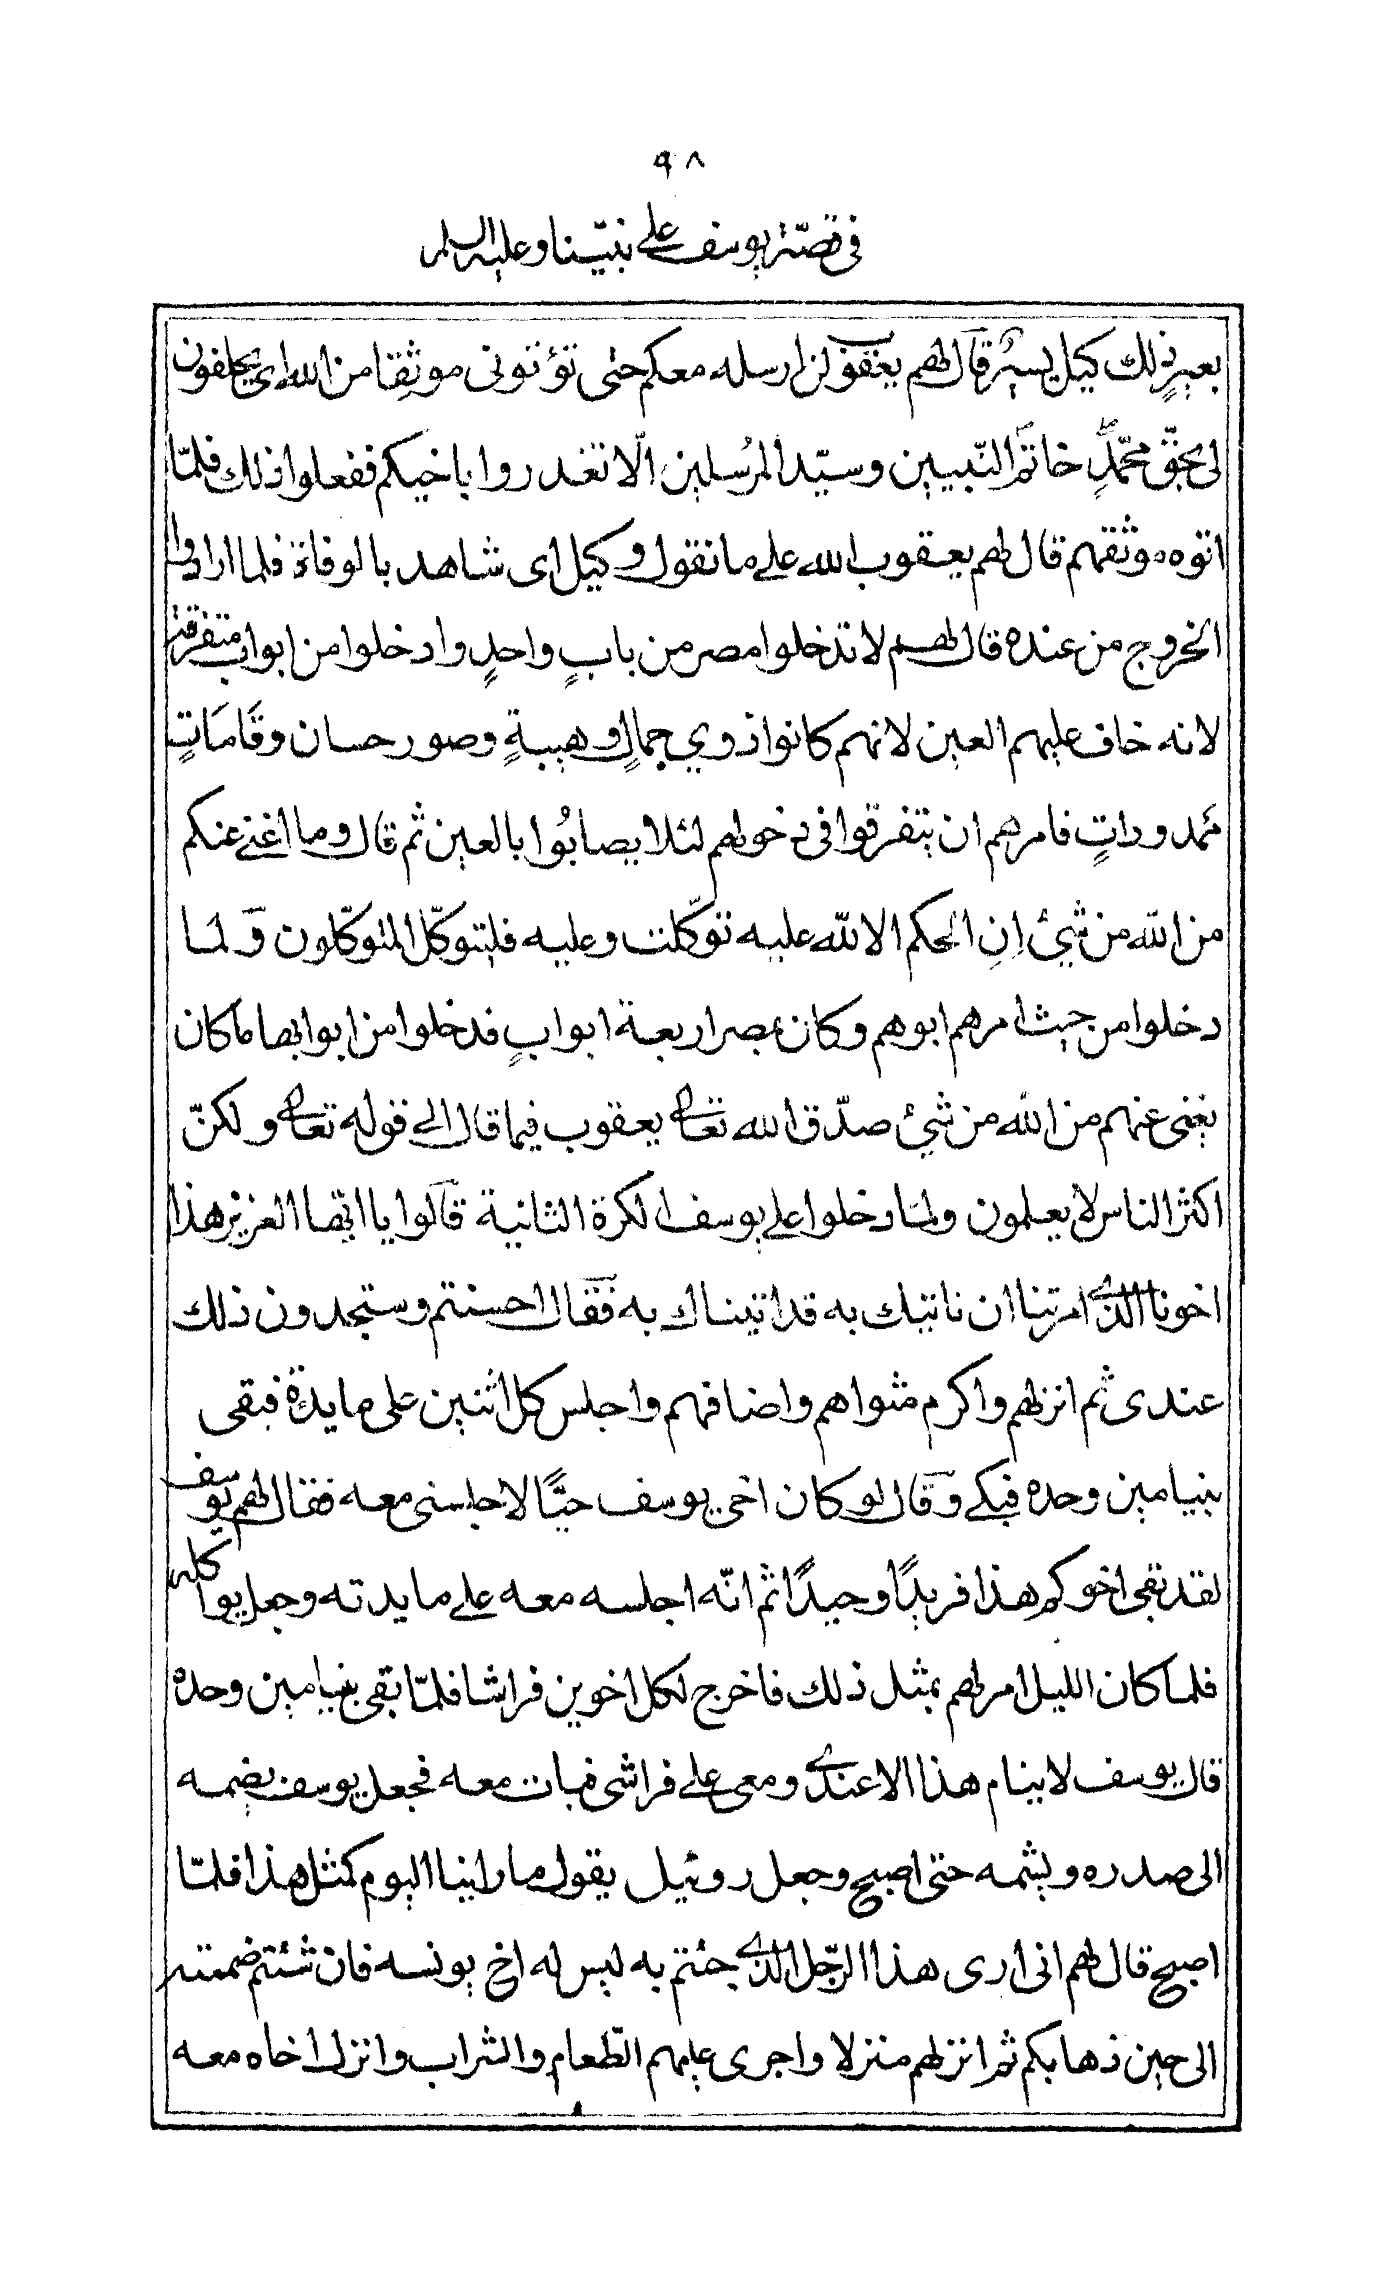 ٩٨
في قصّة يوسف على نبيّنا وعليه السلم
بعيرٍ ذلك كيل يسيرٌ قال لهم يعقوب لن ارسله معكم حتى تؤتوني موثِقا من الله اى يحلفون
لى بحقّ محمّدٍ خاتم النّبيين وسيّد المرُسلين الّا تغدروا باخيكم ففعلوا ذلك فلمّا
اتوه موثقهم قال لهم يعقوب الله على ما نقول وكيل اى شاهد بالوفاة فلما ارادوا
الخروج من عنده قال لهم لا تدخلوا مصر من بابٍ واحدٍ وادخلوا من ابواب متفرقة
لانه خاف عليهم العين لانهم كانوا ذوي جمالٍ وهيبةٍ وصور حسان وقَامَاتٍ
ممدوداتٍ فامرهم ان يتفرقوا في دخولهم لئلا يصابُوا بالعين ثم قال وما اغنى عنكم
من الله من شئ اِنِ الحكم الا لله عليه توكّلت وعليه فليتوكّل المتوكّلون وَلما
دخلوا من حيث امرهم ابوهم وكان بمصر اربعة ابوابٍ فدخلوا من ابوابها ما كان
يغنى عنهم من الله من شئ صدّق الله تعالى يعقوب فيما قال الى قوله تعالى ولكنّ
اكثر الناس لا يعلمون ولما دخلوا على يوسف الكرة الثانية قالوا يا ايّها العزيز هذا
اخونا الذى امرتنا ان ناتيك به قد اتيناك به فقال احسنتم وستجدون ذلك
عندى ثم انزلهم واكرم مثواهم واضافهم واجلس كل اثنين على مايدة فبقى
بنيامين وحده فبكى وقال لو كان اخى يوسف حيًّا لاجلسنى معه فقال لهم يوسف
لقد بقى اخوكم هذا فريدًا وحيدًا ثم انّه اجلسه معه على مايدته وجعل يواكله
فلما كان الليل امر لهم بمثل ذلك فاخرج لكل اخوين فراشا فلمّا بقى بنيامين وحده
قال يوسف لا ينام هذا الا عندى ومعى على فراشى فبات معه فجعل يوسف يضمه
الى صدره ويشمه حتى اصبح وجعل روئيل يقول ما راينا اليوم كمثل هذا فلمّا
اصبح قال لهم انى ارى هذا الرّجل الذى جئتم به ليس له اخ يونسه فان شئتم ضممته
الى حين ذهابكم ثم انزلهم منزلا واجرى عليهم الطّعام والشراب وانزل اخاه معه